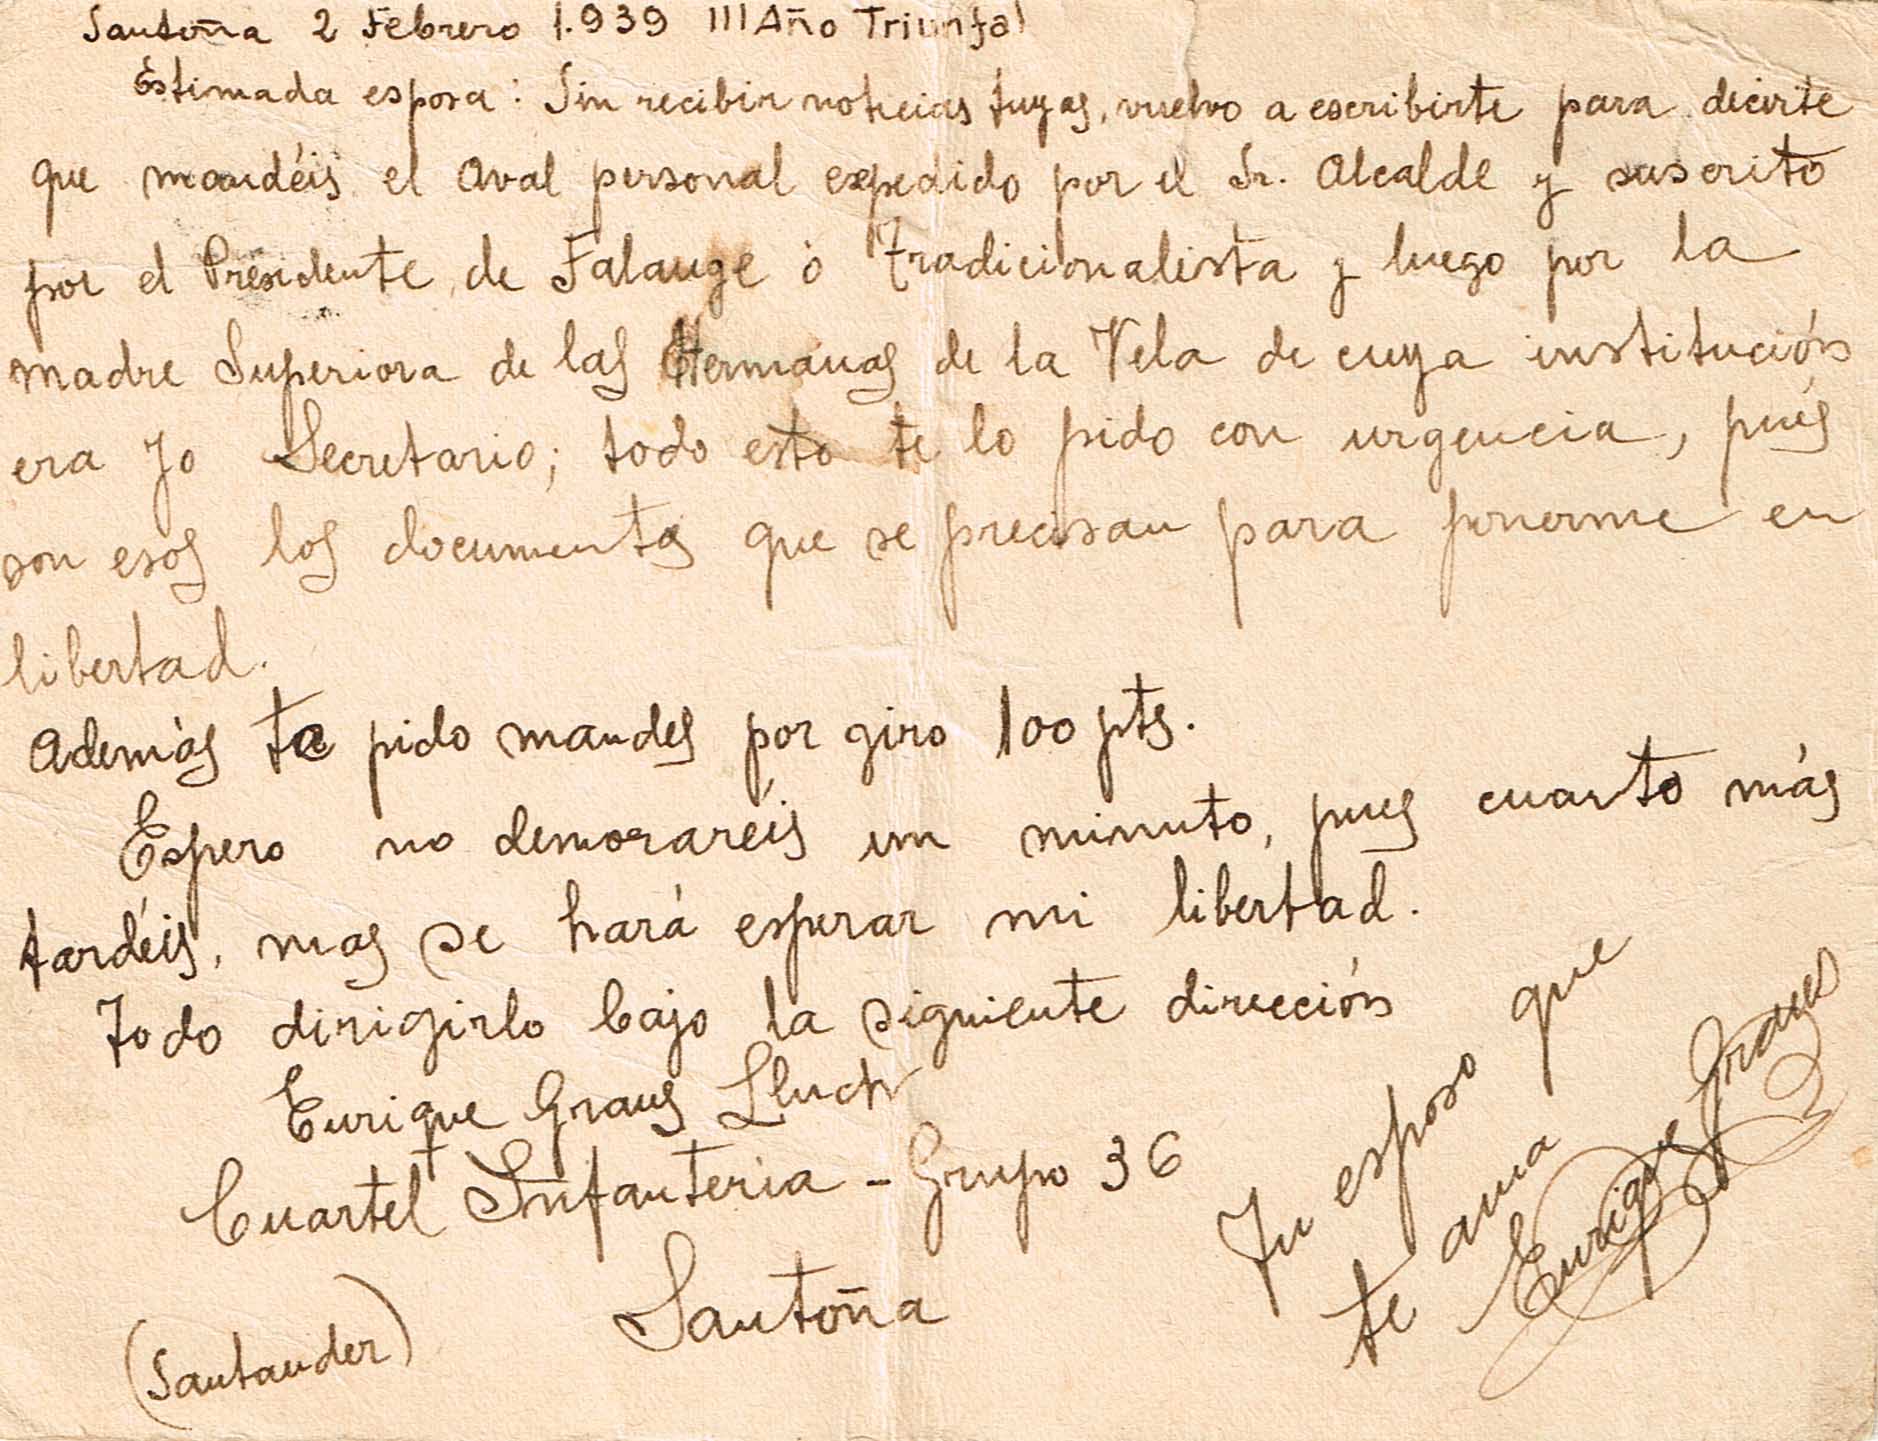 Santoña 2 Febrero 1.939 III Año Triunfal
Estimada esposa: Sin recibir noticias tuyas, vuelvo a escribirte para decirte
que mandéis el Aval personal expedido por el Sr. Alcalde y suscrito
por el Presidente de Falange ó Tradicionalista y luego por la
madre Superiora de las Hermanas de la Vela de cuya institución
era yo Secretario; todo esto te lo pido con urgencia, pués
son esos los documentos que se precisan para ponerme en
libertad.
Además te pido mandes por giro 100 pts.
Espero no demoraréis un minuto, pues cuanto más
tardéis, mas se hará esperar mi libertad.
Todo dirigirlo bajo la siguiente dirección
Enrique Graus Lluch
Cuartel Infanteria - Grupo 36
Santoña
(Santander)
Tu esposo que
te ama
Enrique Graus